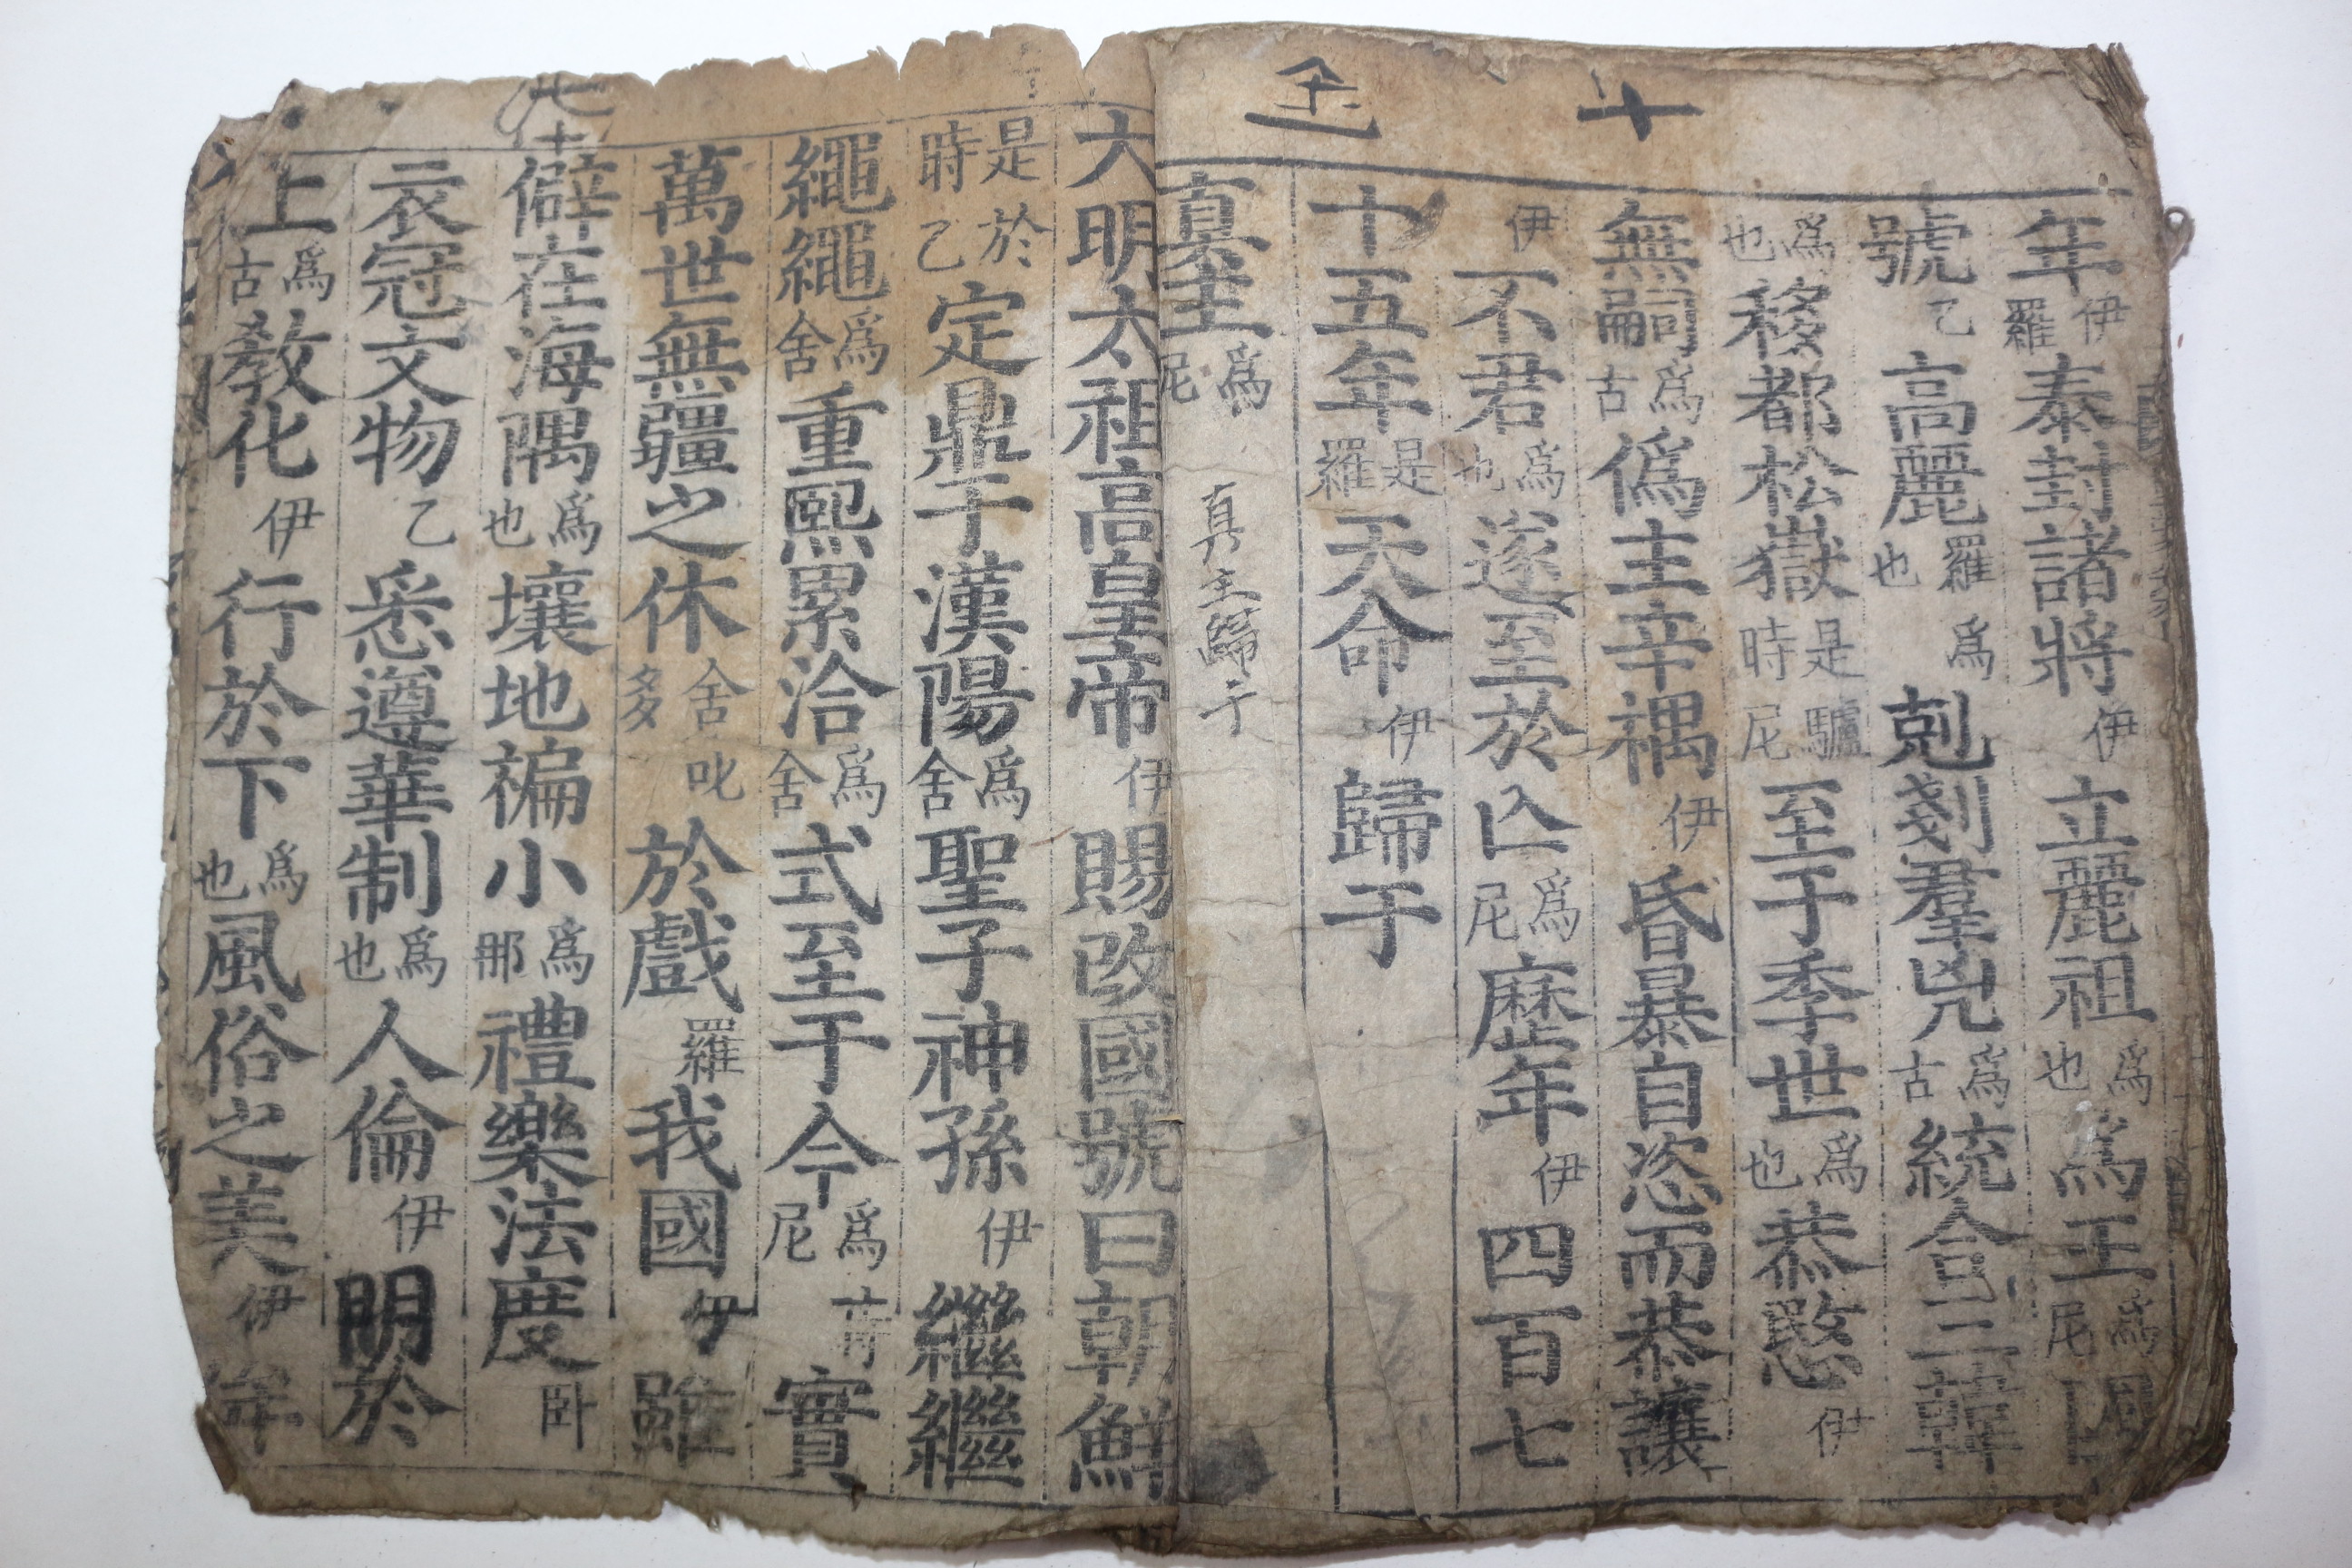 十
全
年伊羅泰封諸將伊立麗祖爲也爲王爲尼國
號乙高麗羅爲也剋剗羣兇爲古統合三韓
爲也移都松嶽是驢時尼至于季世爲也恭愍伊
無嗣爲古僞主辛禑伊昏暴自恣而恭讓
伊不君爲也遂至於亾爲尼歷年伊四百七
十五年是羅天命伊歸于
眞主爲尼
真主歸于
大明太祖高皇帝伊賜改國號曰朝鮮
是於時乙定鼎于漢陽爲舍聖子神孫伊繼繼
繩繩爲舍重熙累洽爲舍式至于今爲尼實
萬世無疆之休舍叱多於戲羅我國伊雖
僻在海隅爲也壤地褊小爲那禮樂法度卧
衣冠文物乙悉遵華制爲也人倫伊明於
上爲古敎化伊行於下爲也風俗之美伊侔